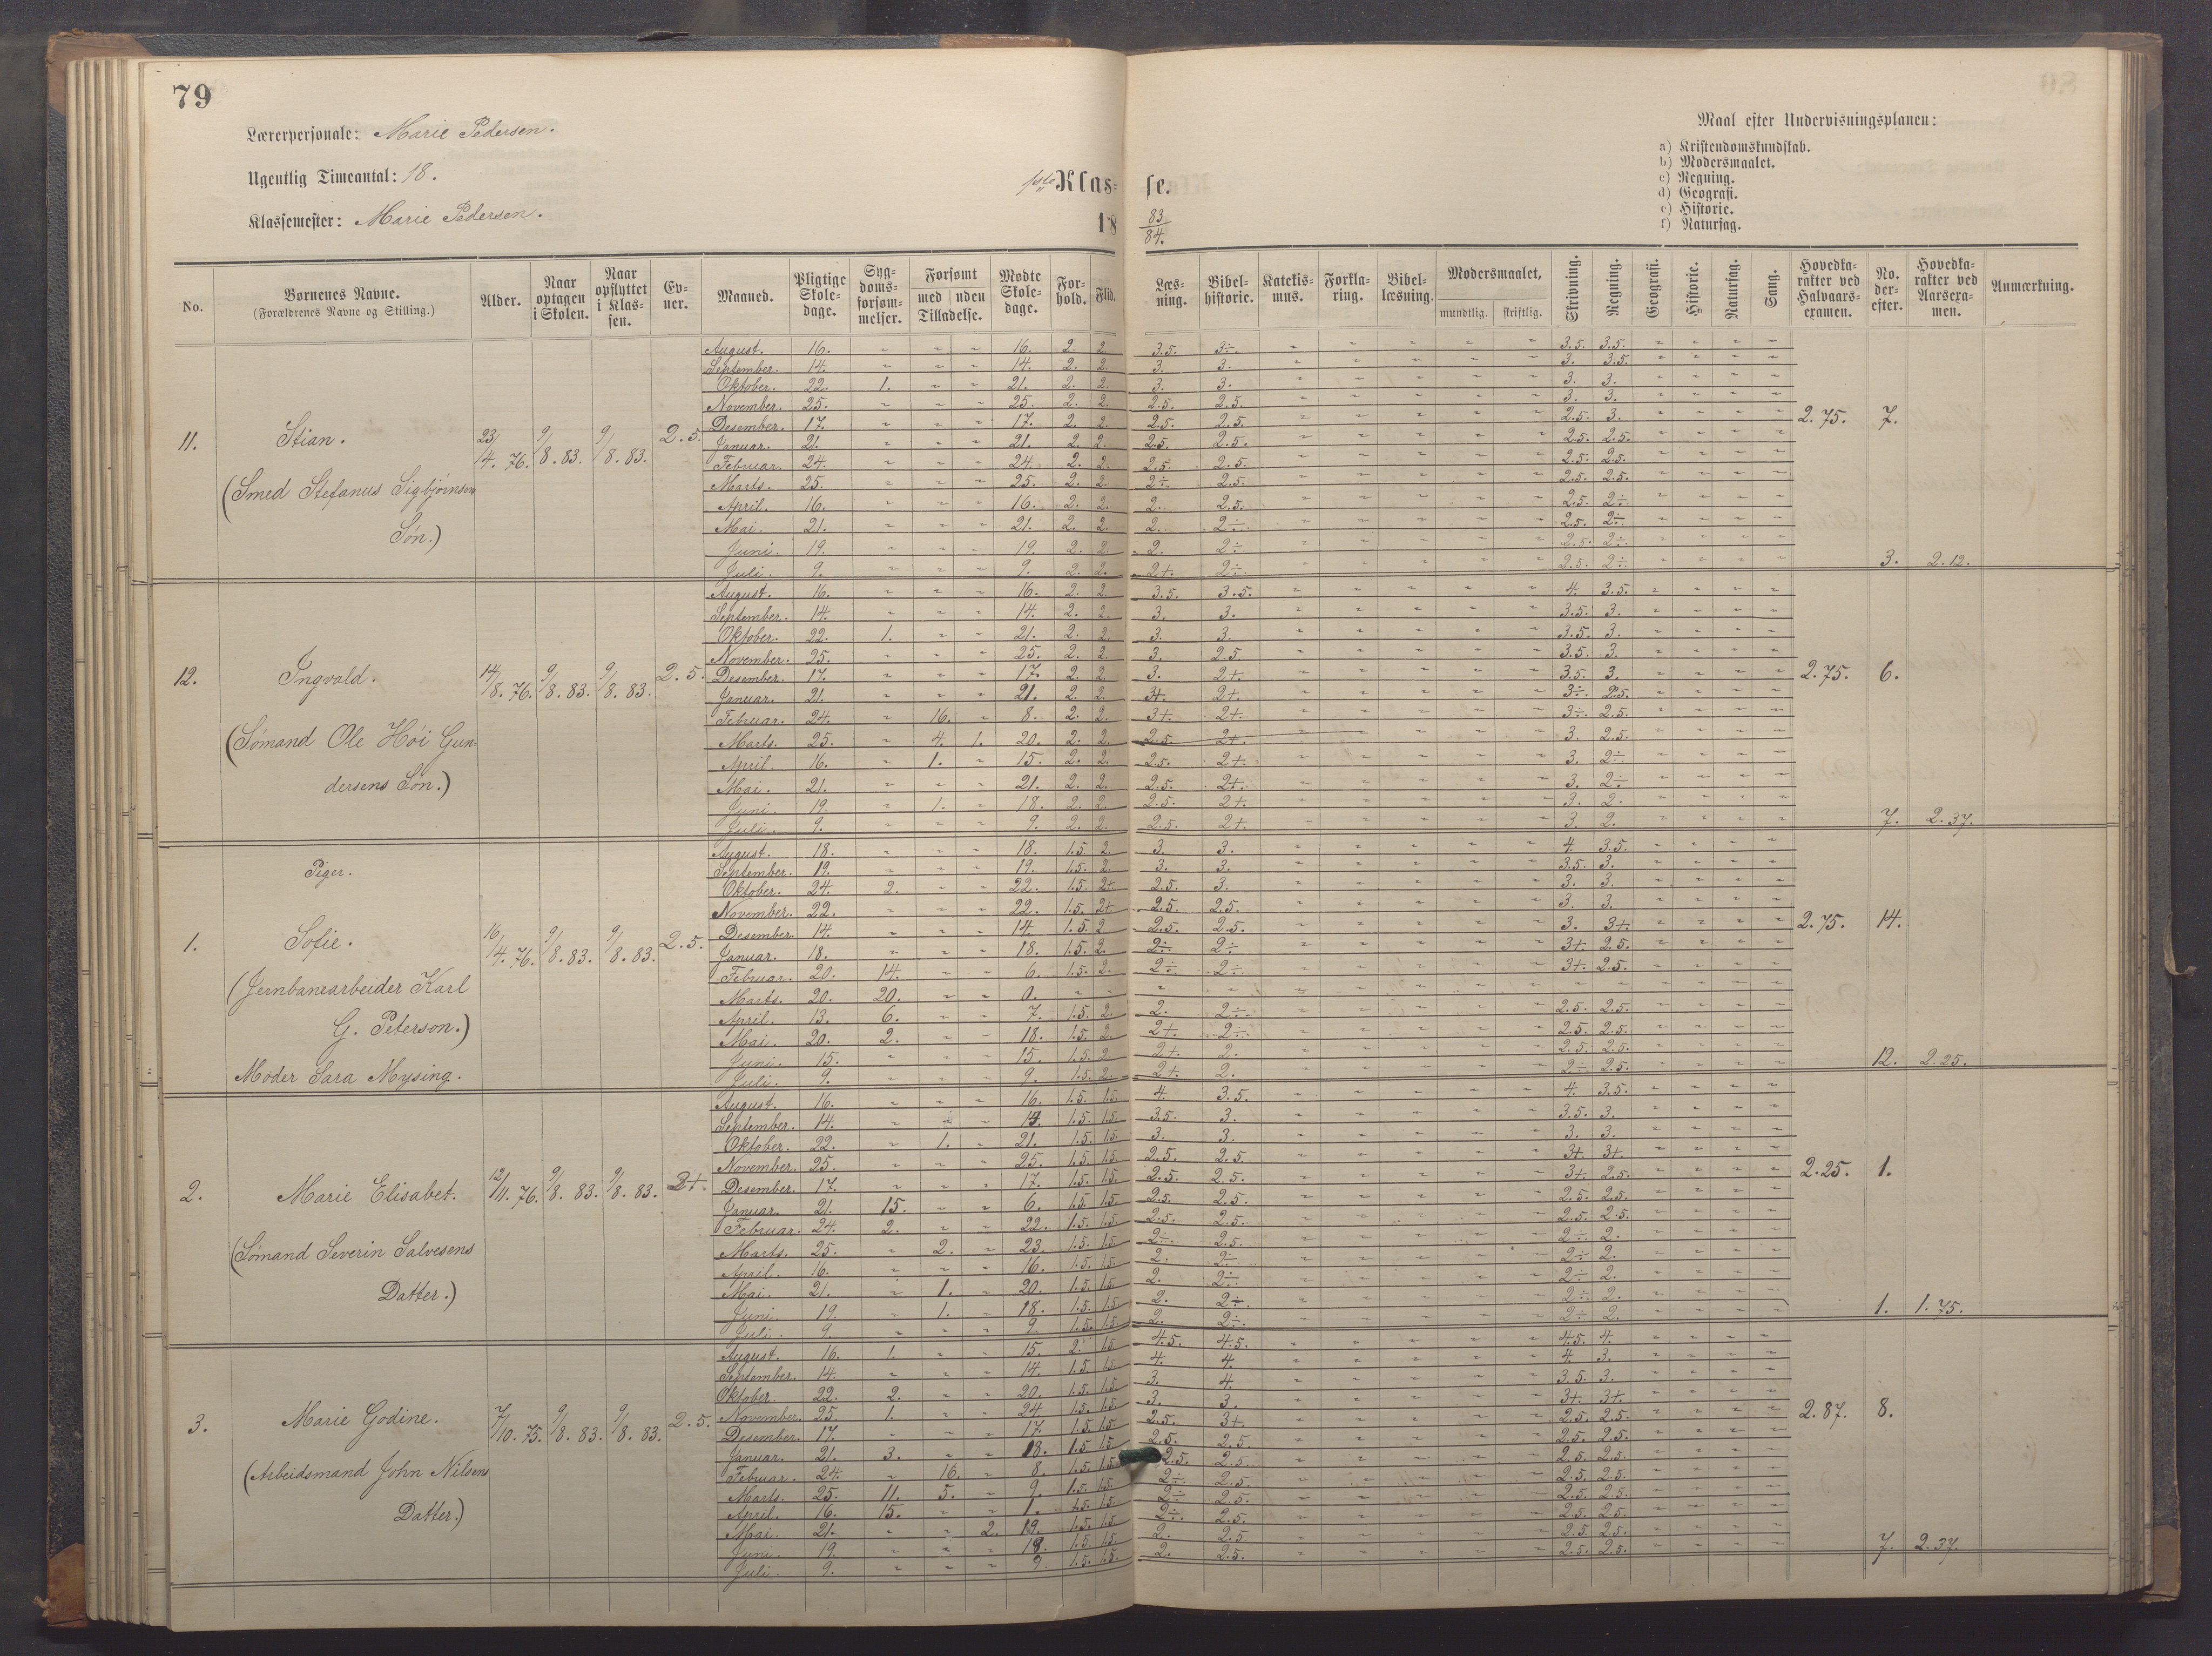 79
Lærerpersonale: Marie Pedersen.
Ugentlig Timeantal: 18.
Klassemester: Marie Pedersen.
1ste Klas-
se.
18 83/84.
Maal efter Undervisningsplanen:
a) Kristendomskundskab.
b) Modersmaalet.
c) Regning.
d) Geografi.
e) Historie.
f) Naturfag.
No. Børnenes Navne. (Forældrenes Navne og Stilling.) Alder. Naar optagen i Skolen. Naar opflyttet i Klas-sen. Ev-ner. Maaned. Pligtige Skole-dage. Syg-doms-forsøm-melser. Forsømt med uden Tilladelse. Mødte Skole-dage. For-hold. Flid. Læs-ning. Bibel-historie. Katekis-mus. Forkla-ring. Bibel-læsning. Modersmaalet, mundtlig. skriftlig. Skrivning. Regning. Geografi. Historie. Naturfag. Sang. Hovedka-rakter ved Halvaars-examen. No. der-efter. Hovedka-rakter ved Aarsexa-men. Anmærkning.
11. Stian. 23/4. 76. 9/8. 83. 9/8. 83. 2.5. 2.75. 7.
(Smed Stefanus Sigbjørnsens
Søn.)
August. 16. " " " 16. 2. 2. 3.5. 3÷. " " " " " 3.5. 3.5. " " " "
September. 14. " " " 14. 2. 2. 3. 3. " " " " " 3. 3.5. " " " "
Oktober. 22. 1. " " 21. 2. 2. 3. 3. " " " " " 3. 3. " " " "
November. 25. " " " 25. 2. 2. 2.5. 2.5. " " " " " 3. 3. " " " "
Desember. 17. " " " 17. 2. 2. 2.5. 2.5. " " " " " 2.5. 3. " " " "
Januar. 21. " " " 21. 2. 2. 2.5. 2.5. " " " " " 2.5. 2.5. " " " "
Februar. 24. " " " 24. 2. 2. 2.5. 2.5. " " " " " 2.5. 2.5. " " " "
Marts. 25. " " " 25. 2. 2. 2÷. 2.5. " " " " " 2.5. 2.5. " " " "
April. 16. " " " 16. 2. 2. 2. 2.5. " " " " " 2.5. 2÷. " " " "
Mai. 21. " " " 21. 2. 2. 2. 2÷. " " " " " 2.5. 2÷. " " " "
Juni. 19. " " " 19. 2. 2. 2. 2÷. " " " " " 2.5. 2÷. " " " "
Juli. 9. " " " 9. 2. 2. 2+. 2÷. " " " " " 2.5. 2÷. " " " " 3. 2.12.
12. Ingvald. 14/8. 76. 9/8. 83. 9/8. 83. 2.5. 2.75. 6.
(Sømand Ole Høi Gun-
dersens Søn.)
August. 16. " " " 16. 2. 2. 3.5. 3.5. " " " " " 4. 3.5. " " " "
September. 14. " " " 14. 2. 2. 3. 3. " " " " " 3.5. 3. " " " "
Oktober. 22. 1. " " 21. 2. 2. 3. 3. " " " " " 3.5. 3. " " " "
November. 25. " " " 25. 2. 2. 3. 2.5. " " " " " 3.5. 3. " " " "
Desember. 17. " " " 17. 2. 2. 3. 2+. " " " " " 3.5. 3. " " " "
Januar. 21. " " " 21. 2. 2. 3+. 2+. " " " " " 3÷. 2.5. " " " "
Februar. 24. " 16. " 8. 2. 2. 3+. 2+. " " " " " 3÷. 2.5. " " " "
Marts. 25. " 4. 1. 20. 2. 2. 2.5. 2+. " " " " " 3. 2.5. " " " "
April. 16. " 1. " 15. 2. 2. 2.5. 2+. " " " " " 3. 2÷. " " " "
Mai. 21. " " " 21. 2. 2. 2.5. 2+. " " " " " 3. 2÷. " " " "
Juni. 19. " 1. " 18. 2. 2. 2.5. 2+. " " " " " 3. 2. " " " "
Juli. 9. " " " 9. 2. 2. 2.5. 2+. " " " " " 3. 2. " " " " 7. 2.37.
Piger.
1. Sofie. 16/4. 76. 9/8. 83. 9/8. 83. 2.5. 2.75. 14.
(Jernbanearbeider Karl
G. Peterson.)
Moder Sara Mysing.
August. 18. " " " 18. 1.5. 2. 3. 3. " " " " " 4. 3.5. " " " "
September. 19. " " " 19. 1.5. 2. 3. 3. " " " " " 3.5. 3. " " " "
Oktober. 24. 2. " " 22. 1.5. 2+. 2.5. 3. " " " " " 3. 3. " " " "
November. 22. " " " 22. 1.5. 2+. 2.5. 2.5. " " " " " 3. 3. " " " "
Desember. 14. " " " 14. 1.5. 2. 2.5. 2.5. " " " " " 3. 3+. " " " "
Januar. 18. " " " 18. 1.5. 2. 2÷. 2÷. " " " " " 3+. 2.5. " " " "
Februar. 20. 14. " " 6. 1.5. 2. 2÷. 2÷. " " " " " 3+. 2.5. " " " "
Marts. 20. 20. " " 0. " " " " " " " " " " " " " " "
April. 13. 6. " " 7. 1.5. 2. 2. 2÷. " " " " " 2.5. 2.5. " " " "
Mai. 20. 2. " " 18. 1.5. 2. 2+. 2÷. " " " " " 2.5. 2.5. " " " "
Juni. 15. " " " 15. 1.5. 2. 2+. 2. " " " " " 2.5. 2.5. " " " "
Juli. 9. " " " 9. 1.5. 2. 2+. 2. " " " " " 2÷. 2.5. " " " " 12. 2.25.
2. Marie Elisabet. 12/11. 76. 9/8. 83. 9/8. 83. 2+. 2.25. 1.
(Sømand Severin Salvesens
Datter.)
August. 16. " " " 16. 1.5. 1.5. 4. 3.5. " " " " " 4. 3.5. " " " "
September. 14. " " " 14. 1.5. 1.5. 3.5. 3. " " " " " 3.5. 3. " " " "
Oktober. 22. " 1. " 21. 1.5. 1.5. 3. 3. " " " " " 3. 3. " " " "
November. 25. " " " 25. 1.5. 1.5. 2.5. 2.5. " " " " " 3+. 3+. " " " "
Desember. 17. " " " 17. 1.5. 1.5. 2.5. 2.5. " " " " " 3+. 2.5. " " " "
Januar. 21. 15. " " 6. 1.5. 1.5. 2.5. 2.5. " " " " " 2.5. 2.5. " " " "
Februar. 24. 2. " " 22. 1.5. 1.5. 2.5. 2.5. " " " " " 2.5. 2.5. " " " "
Marts. 25. " 2. " 23. 1.5. 1.5. 2÷. 2.5. " " " " " 2÷. 2. " " " "
April. 16. " " " 16. 1.5. 1.5. 2. 2÷. " " " " " 2÷. 2. " " " "
Mai. 21. " 1. " 20. 1.5. 1.5. 2. 2÷. " " " " " 2÷. 2. " " " "
Juni. 19. " 1. " 18. 1.5. 1.5. 2. 2÷. " " " " " 2÷. 2. " " " "
Juli. 9. " " " 9. 1.5. 1.5. 2. 2÷. " " " " " 2÷. 2. " " " " 1. 1.75.
3. Marie Godine. 7/10. 75. 9/8. 83. 9/8. 83. 2.5. 2.87. 8.
(Arbeidsmand John Nilsens
Datter.)
August. 16. 1. " " 15. 2. 1.5. 4.5. 4.5. " " " " " 4.5. 4. " " " "
September. 14. " " " 14. 1.5. 1.5. 4. 4. " " " " " 4. 3. " " " "
Oktober. 22. 2. " " 20. 1.5. 1.5. 3. 4. " " " " " 3.5. 3. " " " "
November. 25. 1. " " 24. 1.5. 1.5. 3. 3. " " " " " 3+. 3+. " " " "
Desember. 17. " " " 17. 1.5. 1.5. 2.5. 3+. " " " " " 2.5. 2.5. " " " "
Januar. 21. 3. " " 18. 1.5. 1.5. 2.5. 2.5. " " " " " 2.5. 2.5. " " " "
Februar. 24. " 16. " 8. 1.5. 1.5. 2.5. 2.5. " " " " " 2.5. 2.5. " " " "
Marts. 25. 11. 5. " 9. 1.5. 1.5. 2÷. 2.5. " " " " " 2.5. 2.5. " " " "
April. 16. 15. " " 1. 1.5. 1.5. 2÷. 2.5. " " " " " 2.5. 2.5. " " " "
Mai. 21. " " 2. 19. 1.5. 1.5. 2÷. 2.5. " " " " " 2.5. 2.5. " " " "
Juni. 19. " " " 19. 1.5. 1.5. 2. 2.5. " " " " " 2.5. 2.5. " " " "
Juli. 9. " " " 9. 1.5. 1.5. 2. 2.5. " " " " " 2.5. 2.5. " " " " 7. 2.37.